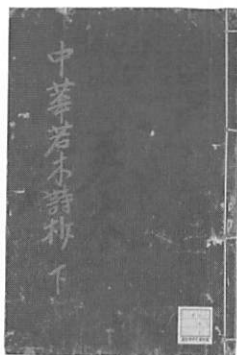 中華若木詩抄 下